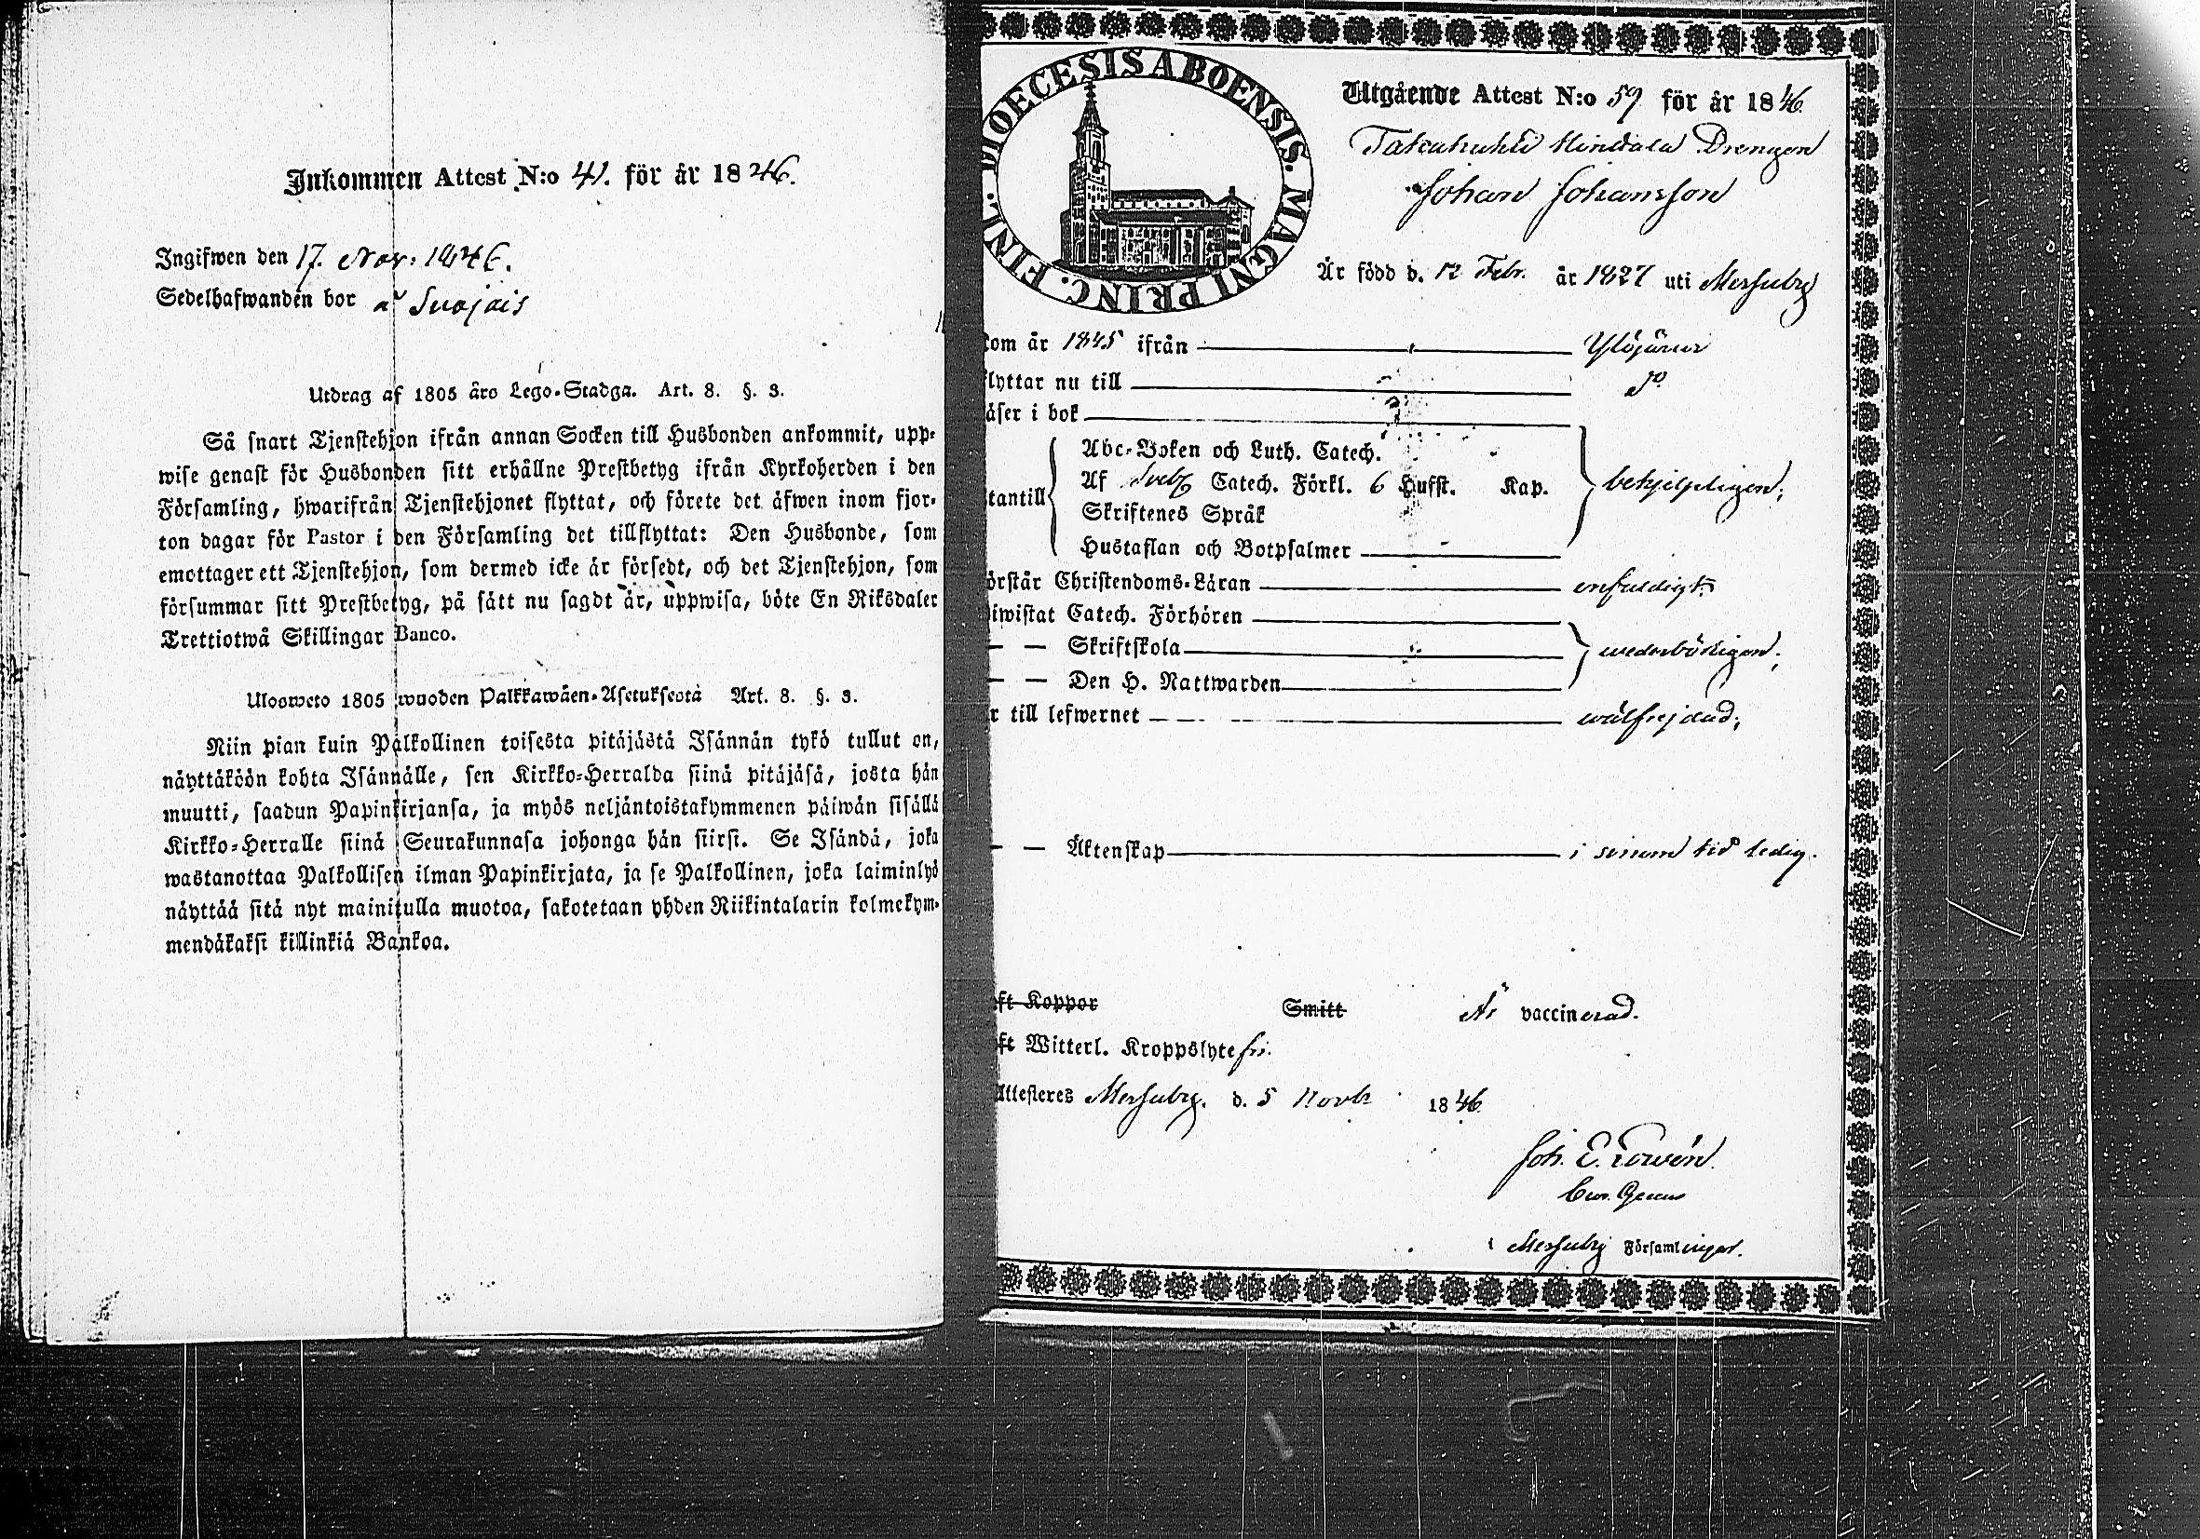 Inkommen Attest N:o 41. för år 1846.
Ingifwen den 17. Nov. 1846.
Sedelhafwanden bor å Suojois
Utdrag af 1805 års Lego-Stadga. Art. 8. §. 3.
Så snart Tjenstehjon ifrån annan Socken till Husbonden ankommit, upp-
wise genast för Husbonden sitt erhållne Prestbetyg ifrån Kyrkoherden i den
Församling, hwarifrån Tjenstehjonet flyttat, och förete det äfwen inom fjor-
ton dagar för Pastor i den Församling det tillflyttat: Den Husbonde, som
emottager ett Tjenstehjon, som dermed icke är försedt, och det Tjenstehjon, som
försummar sitt Prestbetyg, på sätt nu sagdt är, uppwisa, böte En Riksdaler
Trettiotwå Skillingar Banco.
Ulosweto 1805 wuoden Palkkawäen-Asetuksesta Art. 8. §. 3.
Niin pian kuin Palkollinen toisesta pitäjästä Isännän tykö tullut on,
näyttäköön kohta Isännälle, sen Kirkko-Herralda siinä pitäjäsä, josta hän
muutti, saadun Papinkirjansa, ja myös neljäntoistakymmenen päiwän sisällä
Kirkko-Herralle siinä Seurakunnasa johonga hän siirsi. Se Isändä, joka
wastanottaa Palkollisen ilman Papinkirjata, ja se Palkollinen, joka laiminlyö
näyttää sitä nyt mainitulla muotoa, sakotetaan yhden Riikintalarin kolmekym-
mendäkaksi killinkiä Bankoa.
DIOECESIS ABOENSIS. MAGNI PRINC. FINL.
Utgående Attest N:o 59 för år 1846.
Drengen
Johan Johansson
Är född d. 12 Febr. år 1827 uti Messuby
kom år 1845 ifrån Ylöjärvi
flyttar nu till do
läser i bok
utantill
Abc-Boken och Luth. Catech.
Af Svebs Catech. Förkl. 6 Hufst. Kap. behjelpligen;
Skriftenes Språk
Hustaflan och Botpsalmer
örstår Christendoms-Läran enfaldigt
biwistat Catech. Förhören
— — Skriftskola wederbörligen;
— — Den H. Nattwarden
r till lefwernet wälfrejdad;
— — Äktenskap i sinom tid ledig.
ft Koppor Smitt Är vaccinerad.
ft Witterl. Kroppslyte fri.
Attesteres Messuby. d. 5 Novbr 1846
Joh. E.
i Messuby Församlingar.